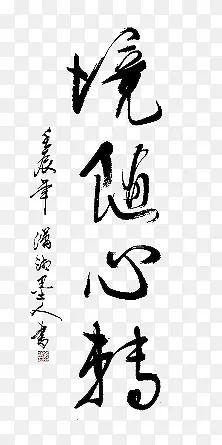 境随心转
壬辰年 潇湘墨人书